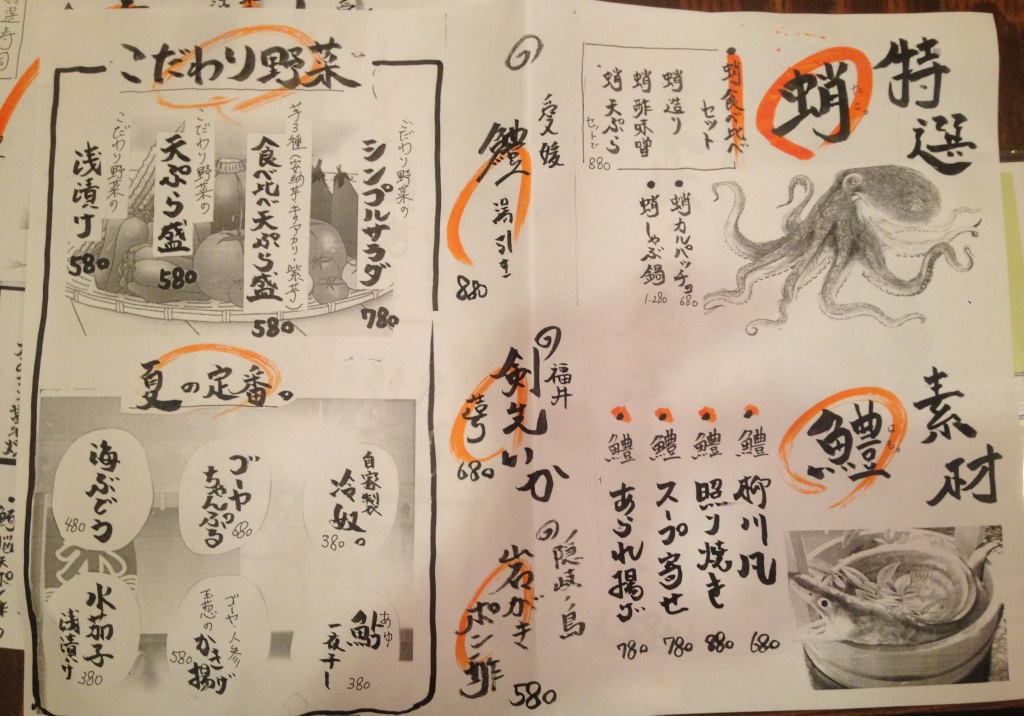 特選
素材
蛸
たこ。
蛸食べ比べ
セット
蛸造り
蛸酢味噌
蛸天ぷら
セットで
880
・蛸カルパッチョ
680
・蛸しゃぶ鍋
1.280
鱧
はも。
鱧 柳川風
680
鱧 照り焼き
880
鱧 スープ寄せ
780
鱧 あられ揚げ
780
愛媛
鱧 湯引き
880
福井
剣先いか
造り
680
隠岐の島
岩がき
ポン酢
580
こだわり野菜
こだわり野菜の
シンプルサラダ
780
芋3種(安納芋・キタアカリ・紫芋)
食べ比べ天ぷら盛
580
こだわり野菜の
天ぷら盛
580
こだわり野菜の
浅漬け
580
夏の定番。
自家製
冷奴
380
ゴーヤ
ちゃんぷる
680
海ぶどう
480
鮎
あゆ
一夜干し
380
ゴーヤ・人参
玉葱のかき揚げ
580
水茄子
浅漬け
380